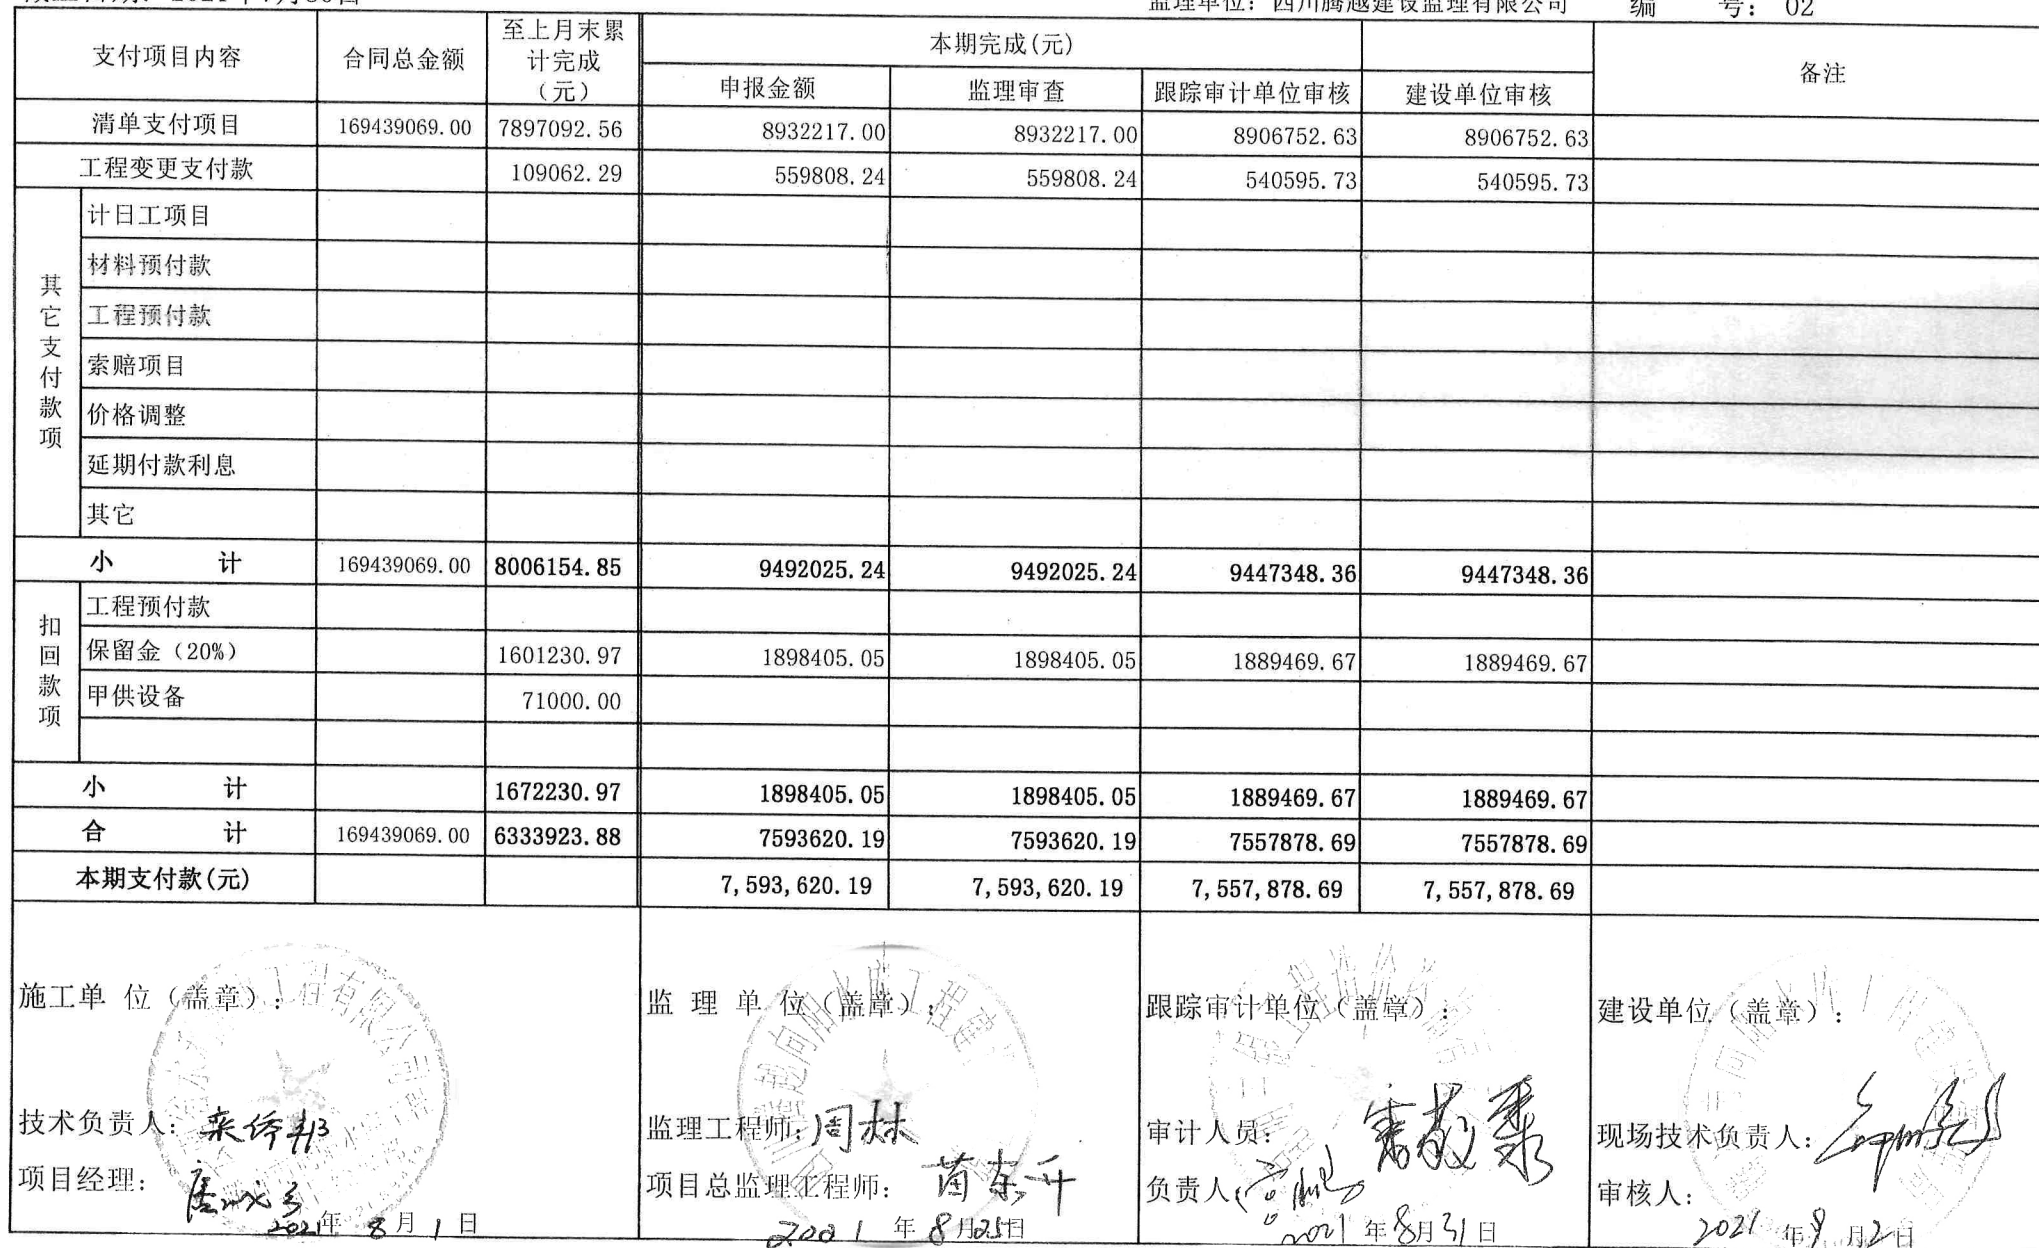 监理单位：四川腾越建设监理有限公司 编 号： 02
支付项目内容 合同总金额 至上月末累计完成（元） 本期完成(元) 备注
申报金额 监理审查 跟踪审计单位审核 建设单位审核
清单支付项目 169439069.00 7897092.56 8932217.00 8932217.00 8906752.63 8906752.63
工程变更支付款 109062.29 559808.24 559808.24 540595.73 540595.73
其它支付款项
计日工项目
材料预付款
工程预付款
索赔项目
价格调整
延期付款利息
其它
小 计 169439069.00 8006154.85 9492025.24 9492025.24 9447348.36 9447348.36
扣回款项
工程预付款
保留金（20%） 1601230.97 1898405.05 1898405.05 1889469.67 1889469.67
甲供设备 71000.00
小 计 1672230.97 1898405.05 1898405.05 1889469.67 1889469.67
合 计 169439069.00 6333923.88 7593620.19 7593620.19 7557878.69 7557878.69
本期支付款(元) 7,593,620.19 7,593,620.19 7,557,878.69 7,557,878.69
施工单 位（盖章）： 监 理 单 位（盖章）： 跟踪审计单位（盖章）： 建设单位（盖章）：
技术负责人： 监理工程师：周林 审计人员： 现场技术负责人：
项目经理： 项目总监理工程师： 负责人 审核人：
2021年 8月 1日 2021 年 8月25日 2021 年 8月31日 2021 年 9月2日